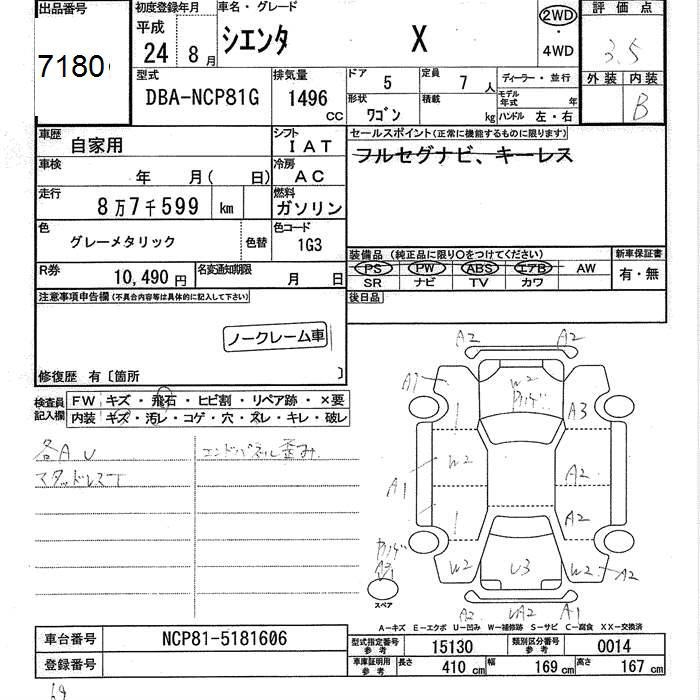 出品番号 初度登録年月 車名・グレード 評価点
7180 平成 24 8月 シエンタ X 2WD・4WD 3.5
外装 内装 B
型式 排気量 ドア 5 定員 7人 ディーラー・並行
DBA-NCP81G 1496cc 形状 ワゴン 積載 kg モデル年式 年 ハンドル 左・右
車歴 自家用 シフト IAT セールスポイント(正常に機能するものに限ります)
フルセグナビ、キーレス
車検 年 月( 日) 冷房 AC
走行 8万7千599 km 燃料 ガソリン
色 グレーメタリック 色替 色コード 1G3
装備品(純正品に限り○をつけてください) 新車保証書
PS PW ABS エアB AW 有・無
SR ナビ TV カワ
R券 10,490円 名変通知期限 月 日
後日品
注意事項申告欄(不具合内容等は具体的に記入して下さい)
ノークレーム車
修復歴 有〔箇所 〕
検査員記入欄 FW キズ・飛石・ヒビ割・リペア跡・×要
内装 キズ・汚レ・コゲ・穴・ヌレ・キレ・破レ
各A.U エンドパネル歪み
スタッドレスT
A2 A2
A1 W2 A3
A1 W2 A2
A2
W2 U3 W2 A2
スペア
A2 UA2 A1
A-キズ E-エクボ U-凹み W-補修跡 S-サビ C-腐食 XX-交換済
車台番号 NCP81-5181606 型式指定番号 参考 15130 類別区分番号 参考 0014
登録番号 車庫証明用 参考 長さ 410 cm 幅 169 cm 高さ 167 cm